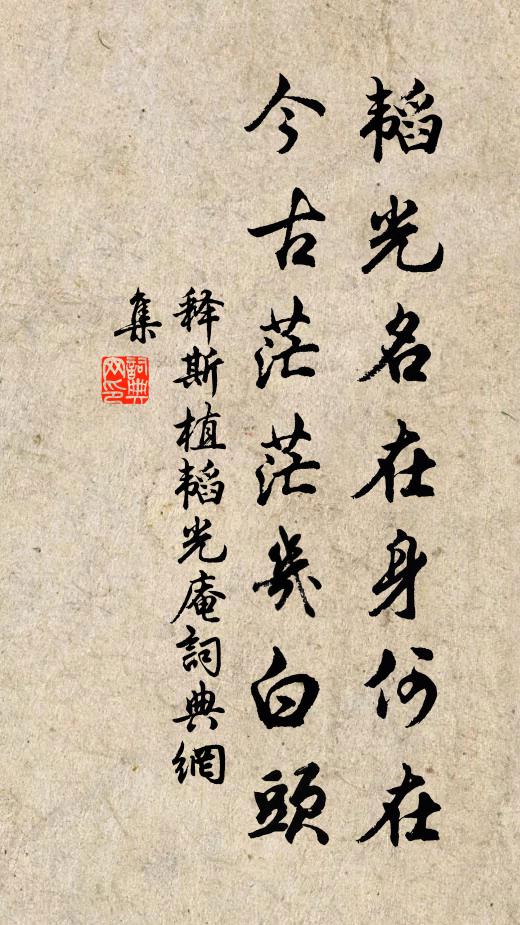 韬光名在身何在
今古茫茫幾白頭
释斯植韬光庵詞典網
集
詞典网印